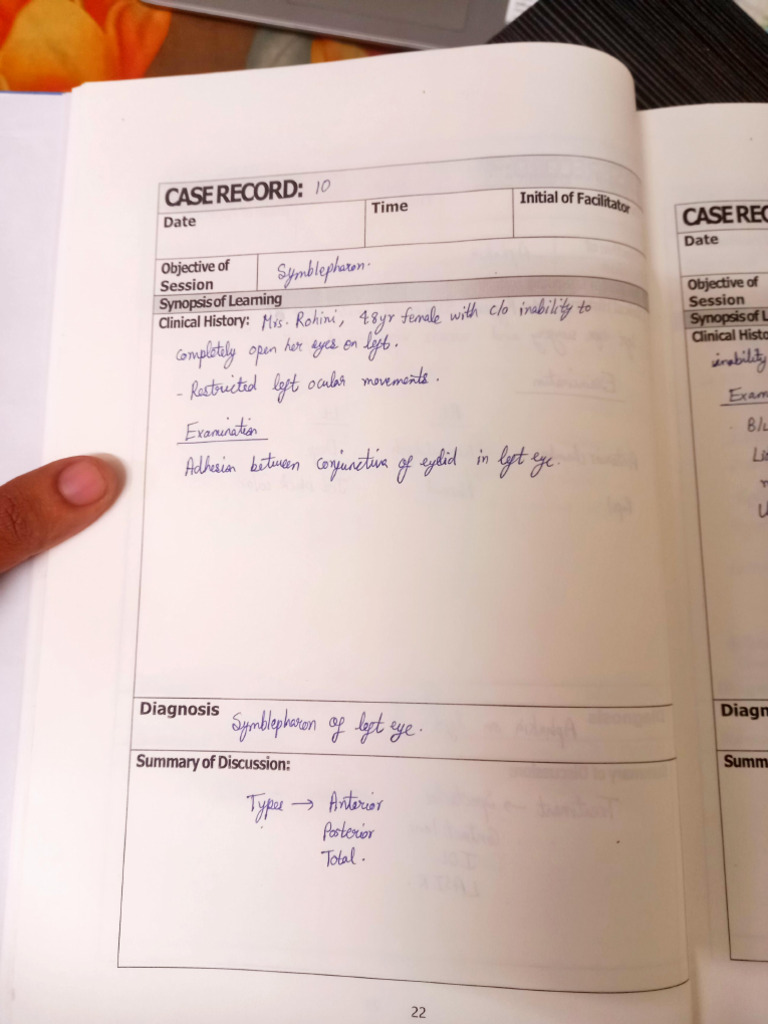 CASE RECORD: 10
Date
Time
Initial of Facilitator
Objective of Session
Symblepharon.
Synopsis of Learning
Clinical History: Mrs. Rohini, 48yr female with c/o inability to
completely open her eyes on left.
- Restricted left ocular movements.
Examination
Adhesion between conjunctiva of eyelid in left eye.
Diagnosis
Symblepharon of left eye.
Summary of Discussion:
Types → Anterior
Posterior
Total.
22
CASE REC
Date
Objective of
Session
Synopsis of L
Clinical Histo
inability
Exam
B/L
Diagn
Summ